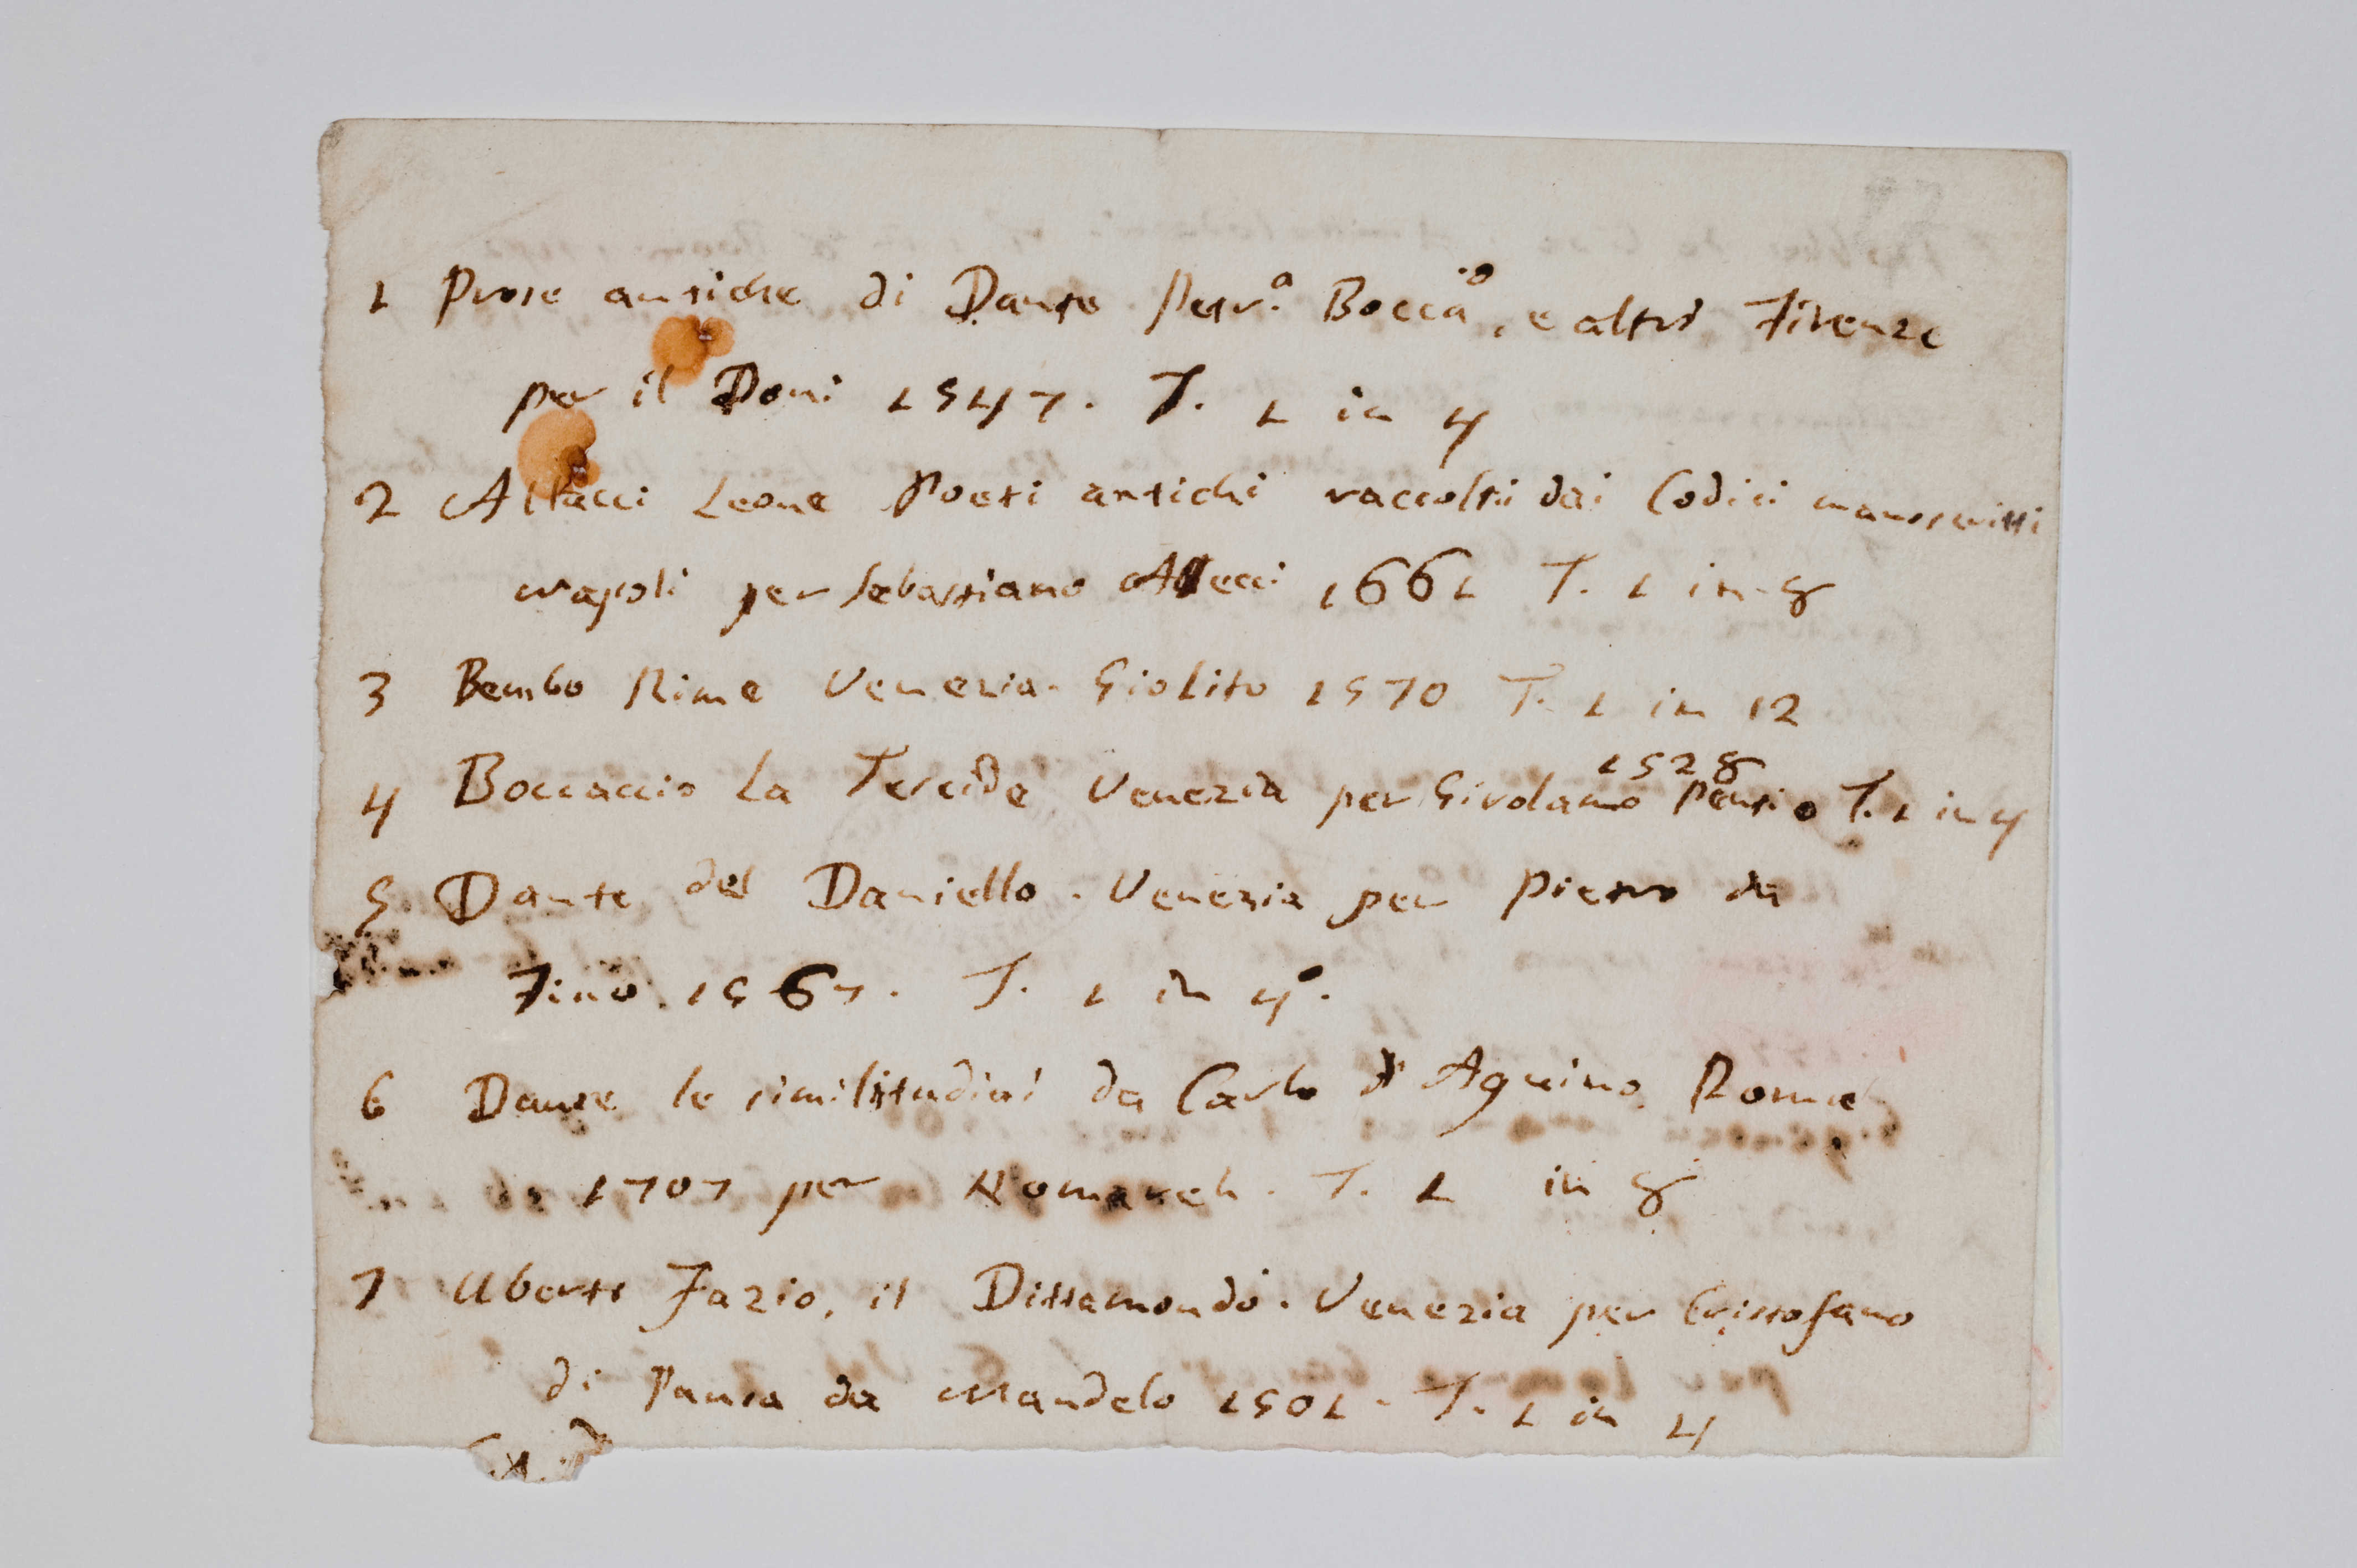 1 Prose antiche di Dante Petr.ª Bocca.io, e altri Firenze
per il Doni 1547. T. 1 in 4
2 Allacci Leone Poeti antichi raccolti dai Codici manoscritti
Napoli per Sebastiano Alecci 1661 T. 1 in-8
3 Bembo Rime Venezia. Giolito 1570 T. 1 in 12
1528
4 Boccaccio La Teseide Venezia per Girolamo Pentio T. 1 in 4
5 Dante del Daniello. Venezia per Pietro da
Fino. 1567. T. 1 in 4°.
6 Dante le similitudini da Carlo d'Aquino. Roma
1707 per Komarech. T. 1 in 8
7 Uberti Fazio, il Dittamondo. Venezia per Cristofano
di Pansa da Mandelo 1501. T. 1 in 4